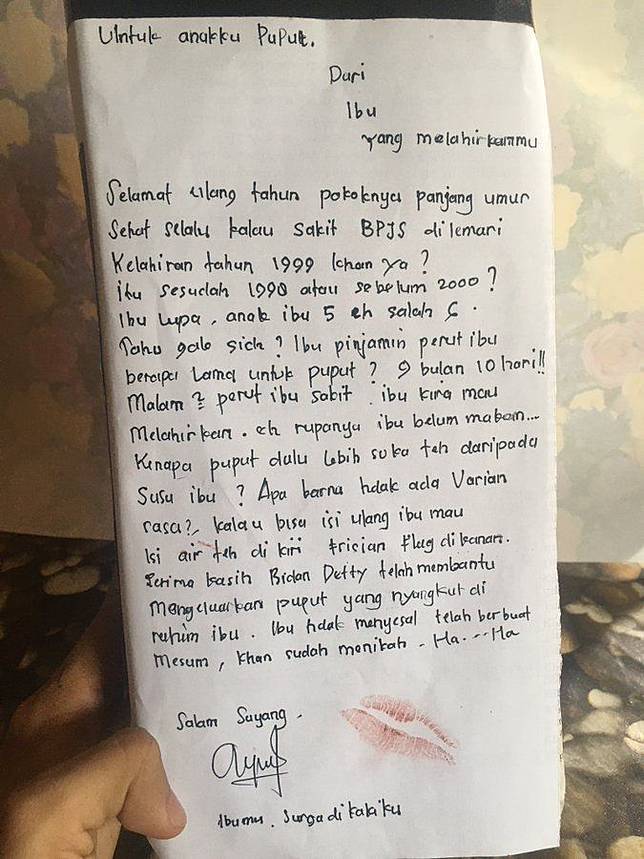 Untuk anakku Puput.
Dari
Ibu
yang melahirkanmu
Selamat ulang tahun pokoknya panjang umur
Sehat selalu kalau sakit BPJS dilemari
Kelahiran tahun 1999 Ichan ya?
itu sesudah 1998 atau sebelum 2000?
Ibu lupa, anak ibu 5 eh salah 6.
Tahu gak sich? Ibu pinjamin perut ibu
berapa Lama untuk puput? 9 bulan 10 hari!!
Malam 2 perut ibu sakit. ibu kira mau
Melahirkan. eh rupanya ibu belum makan...
Kenapa puput dulu lebih suka teh daripada
Susu ibu? Apa karna tidak ada Varian
rasa? kalau bisa isi ulang ibu mau
Isi air teh di kiri frician flag dikanan.
Terima kasih Bidan Detty telah membantu
Mengeluarkan puput yang nyangkut di
rahim ibu. Ibu tidak menyesal telah berbuat
Mesum, khan sudah menikah - Ha...Ha
Salam Sayang -
Ibumu. Surga di kakiku